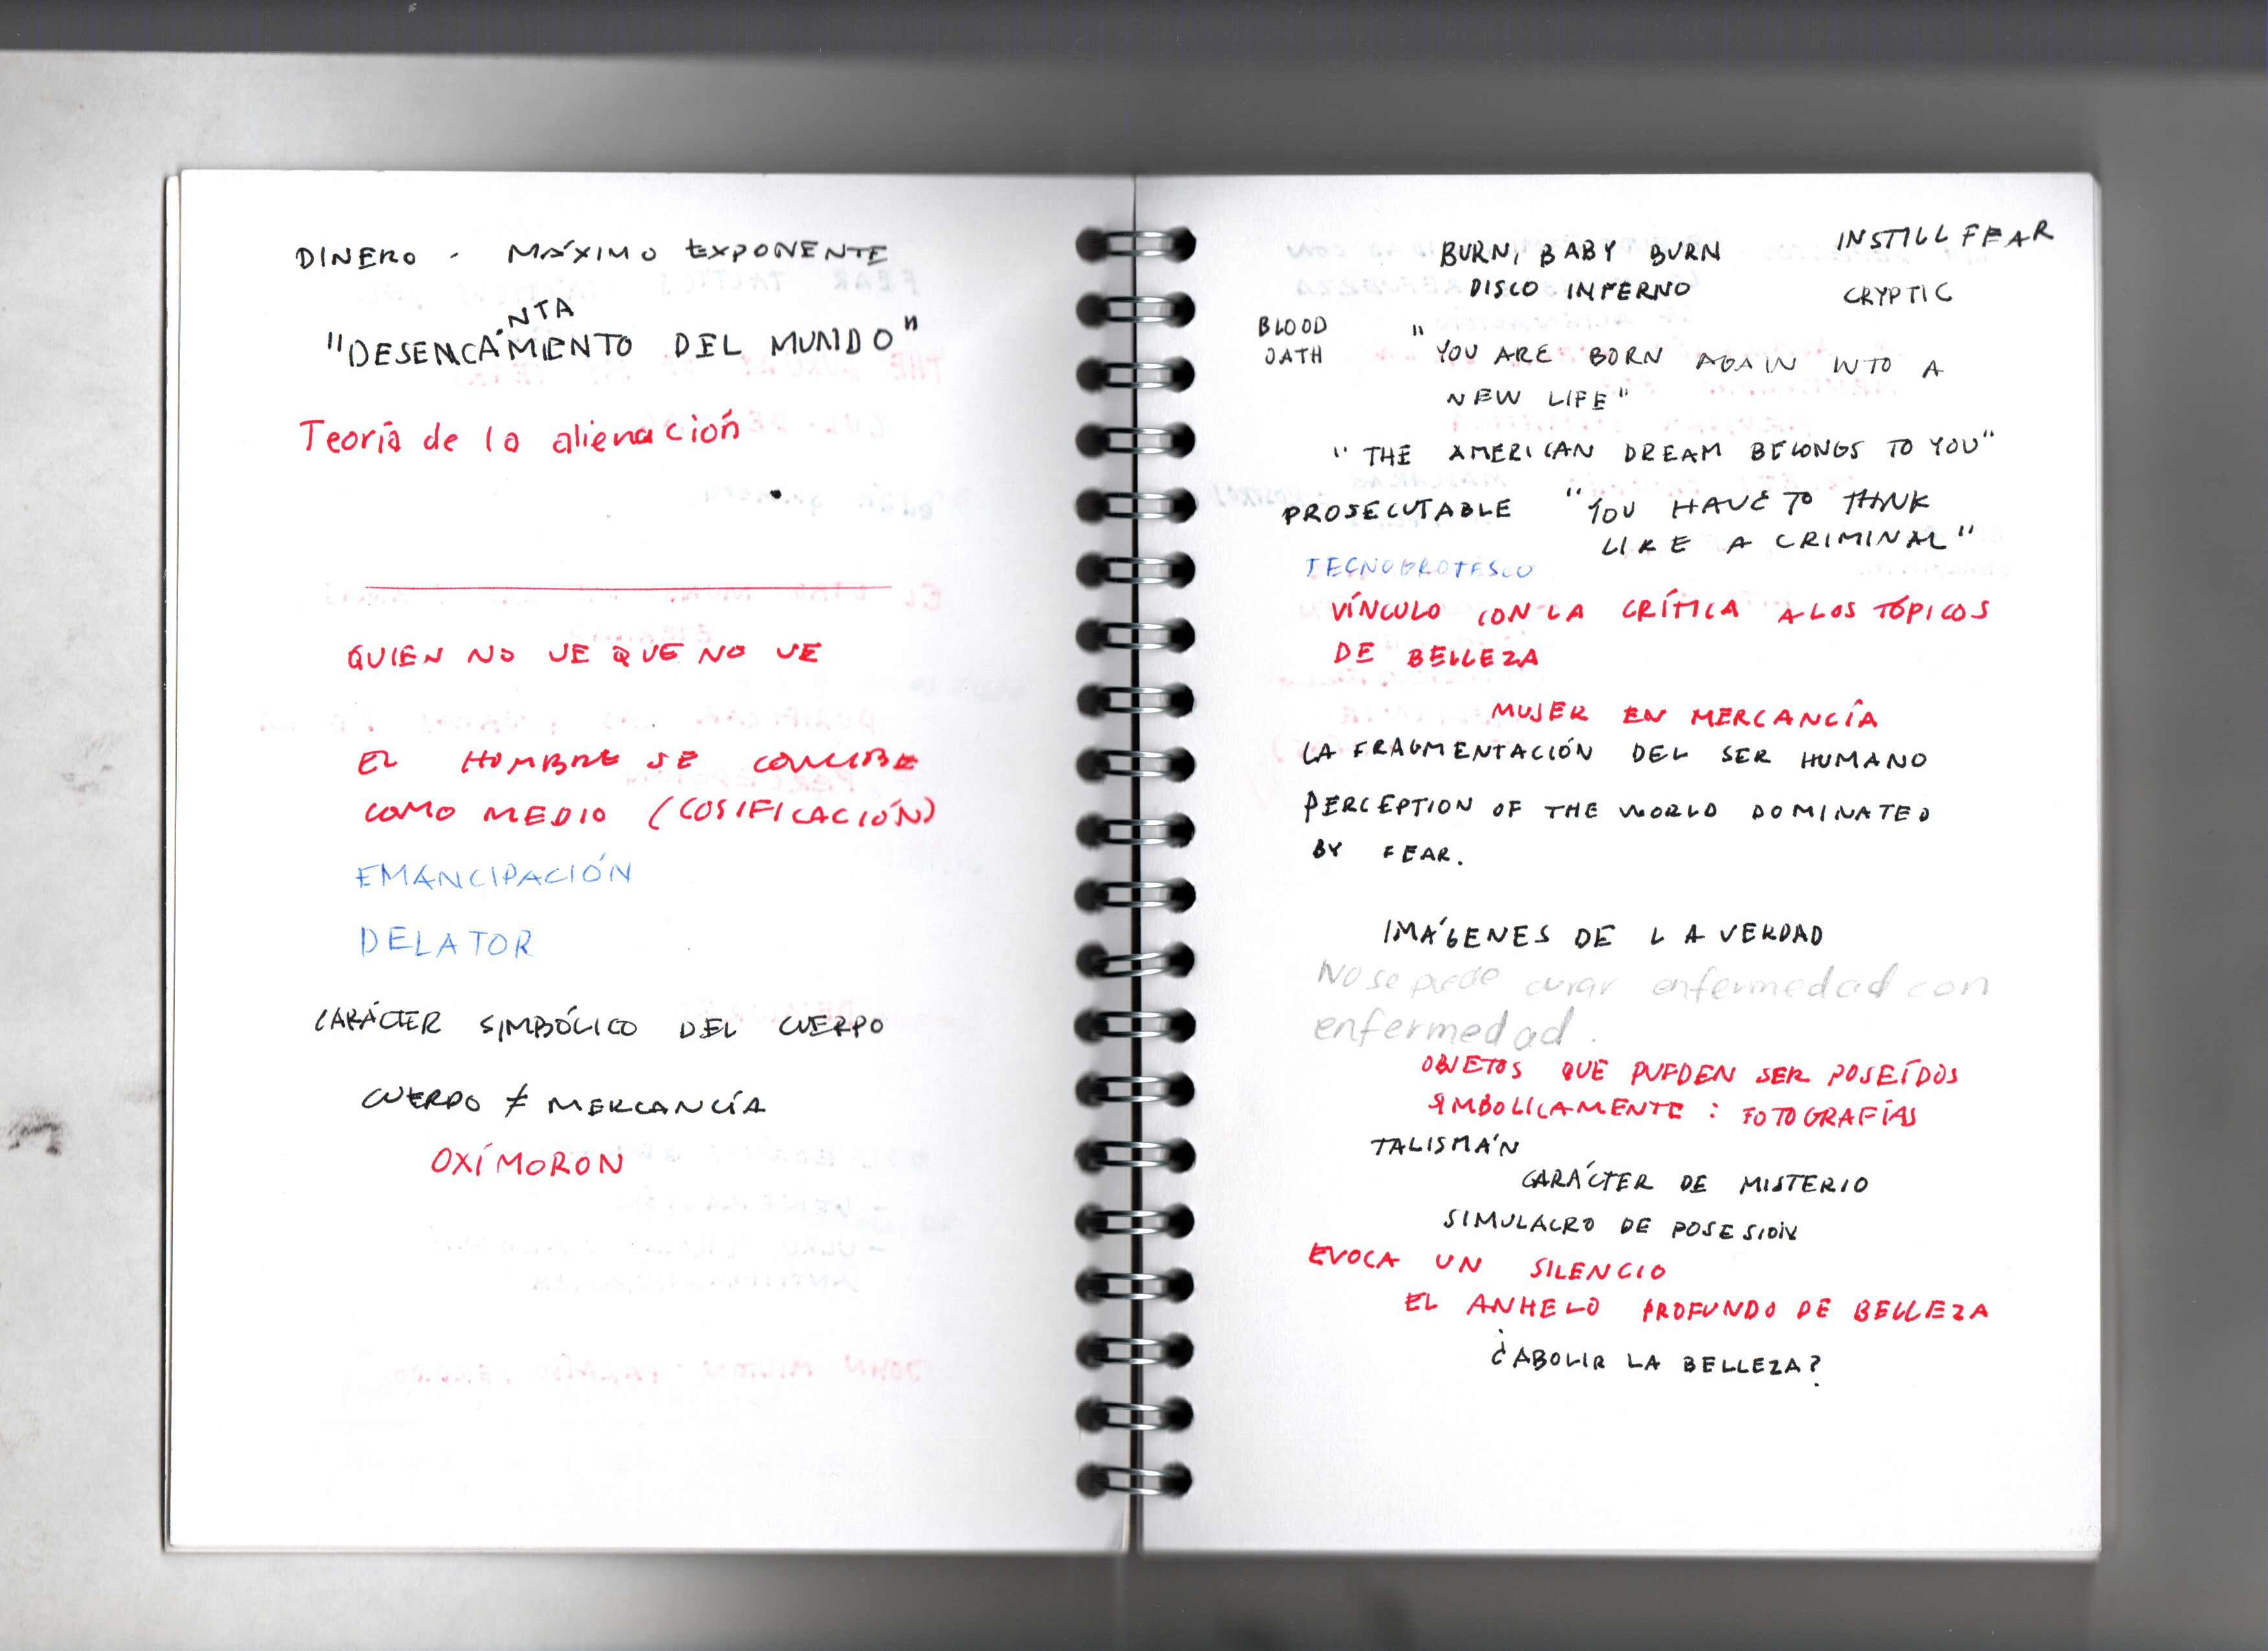 DINERO - MÁXIMO EXPONENTE
NTA
"DESENCAMIENTO DEL MUNDO"
Teoría de la alienación
QUIEN NO VE QUE NO VE
EL HOMBRE SE CONCIBE
COMO MEDIO (COSIFICACIÓN)
EMANCIPACIÓN
DELATOR
CARÁCTER SIMBÓLICO DEL CUERPO
CUERPO ≠ MERCANCÍA
OXÍMORON
BURN, BABY BURN
DISCO INFERNO
INSTILL FEAR
CRYPTIC
BLOOD
OATH
"YOU ARE BORN AGAIN INTO A
NEW LIFE"
"THE AMERICAN DREAM BELONGS TO YOU"
PROSECUTABLE "YOU HAVE TO THINK
LIKE A CRIMINAL"
TECNOGROTESCO
VÍNCULO CON LA CRÍTICA A LOS TÓPICOS
DE BELLEZA
MUJER EN MERCANCÍA
LA FRAGMENTACIÓN DEL SER HUMANO
PERCEPTION OF THE WORLD DOMINATED
BY FEAR.
IMÁGENES DE LA VERDAD
No se puede curar enfermedad con
enfermedad.
OBJETOS QUE PUEDEN SER POSEÍDOS
SIMBOLICAMENTE: FOTOGRAFÍAS
TALISMÁN
CARÁCTER DE MISTERIO
SIMULACRO DE POSESIÓN
EVOCA UN SILENCIO
EL ANHELO PROFUNDO DE BELLEZA
¿ABOLIR LA BELLEZA?